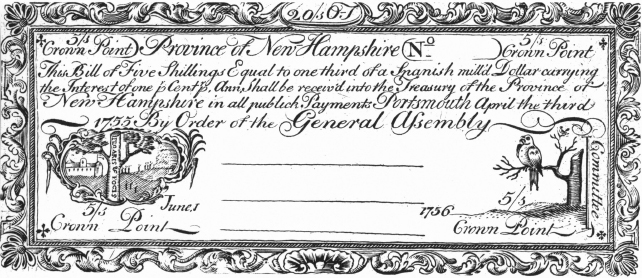 20/40-1
5/s Province of New Hampshire (No ) 5/s
Crown Point Crown Point
This Bill of Five Shillings Equal to one third of a Spanish mill'd Dollar carrying
the Interest of one p Cent p. Ann, Shall be receiv'd into the Treasury of the Province of
New Hampshire in all publick Payments Portsmouth April the third
1755 By Order of the General Assembly
5/s June 1 1756 5/s Committee
Crown Point Crown Point